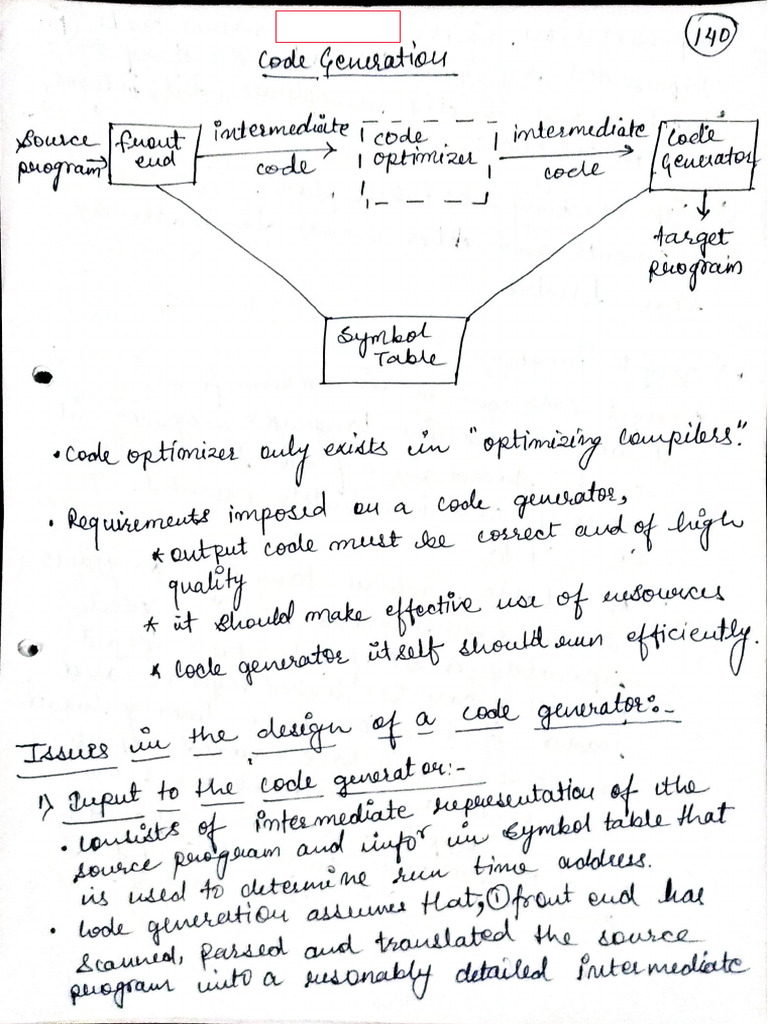 140
Code Generation
Source program
front end
intermediate code
code optimizer
intermediate code
Code Generator
target program
Symbol Table
• Code optimizer only exists in "optimizing compilers".
• Requirements imposed on a code generator,
* output code must be correct and of high
quality
* it should make effective use of resources
* code generator itself should run efficiently.
Issues in the design of a code generator:-
1) Input to the code generator:-
• consists of intermediate representation of the
source program and infoʳ in symbol table that
is used to determine run time address.
• code generation assumes that, ① front end has
scanned, parsed and translated the source
program into a resonably detailed intermediate